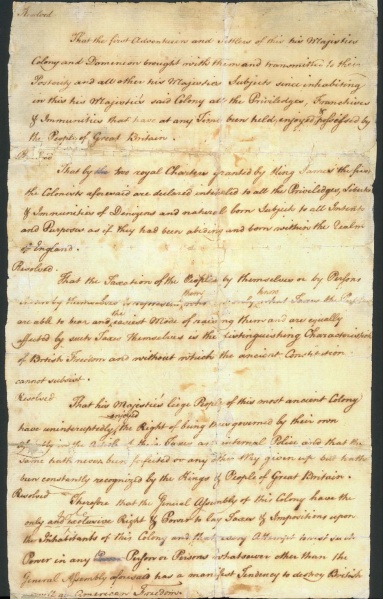 Resolved
That the first Adventurers and Settlers of this his Majesties
Colony and Dominion brought with them and transmitted to their
Posterity and all other his Majesties Subjects since inhabiting
in this his Majesties said Colony all the Priviledges, Franchises
& Immunities that have at any Time been held, enjoyed, possessed by
the People of Great Britain.
That by the two royal Charters granted by King James the first
the Colonists aforesaid are declared intituled to all the Priviledges, Liberties
& Immunities of Denizens and natural born Subjects to all Intents
and Purposes as if they had been abiding and born within the Realm
of England.
Resolved
That the Taxation of the People by themselves or by Persons
chosen by themselves to represent them who can only know what Taxes the People
are able to bear and the easiest Mode of raising them and are equally
affected by such Taxes themselves is the distinguishing Characteristick
of British Freedom and without which the ancient Constitution
cannot subsist.
Resolved
That his Majesties liege People of this most ancient Colony
have uninteruptedly enjoyed the Right of being thus governed by their own
Assembly in the Article of their Taxes and internal Police and that the
same hath never been forfeited or any other Way given up but hath
been constantly recognized by the Kings & People of Great Britain.
Resolved
Therefore that the General Assembly of this Colony have the
only and exclusive Right & Power to lay Taxes & Impositions upon
the Inhabitants of this Colony and that every Attempt to vest such
Power in any Person or Persons whatsoever other than the
General Assembly aforesaid has a manifest Tendency to destroy British
American Freedom